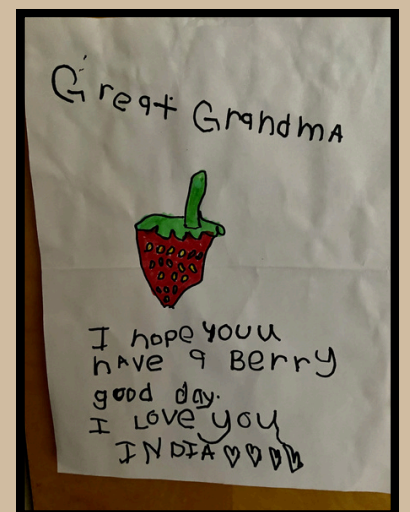 Great GrandmA
I hope youu
hAve a Berry
good day.
I Love you
INDIA ♡♡♡♡